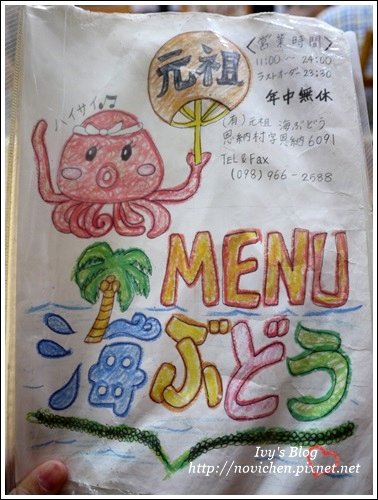 元祖
〈営業時間〉
11:00〜24:00
ラストオーダー23:30
年中無休
ハイサイ♫
(有)元祖 海ぶどう
恩納村字恩納6091
TEL&FAX
(098)966-2588
MENU
海ぶどう
Ivy's Blog
http://novichen.pixnet.net